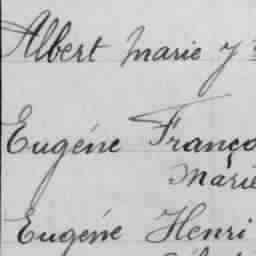 Albert Marie
Eugéne Franço
Marie
Eugéne Henri